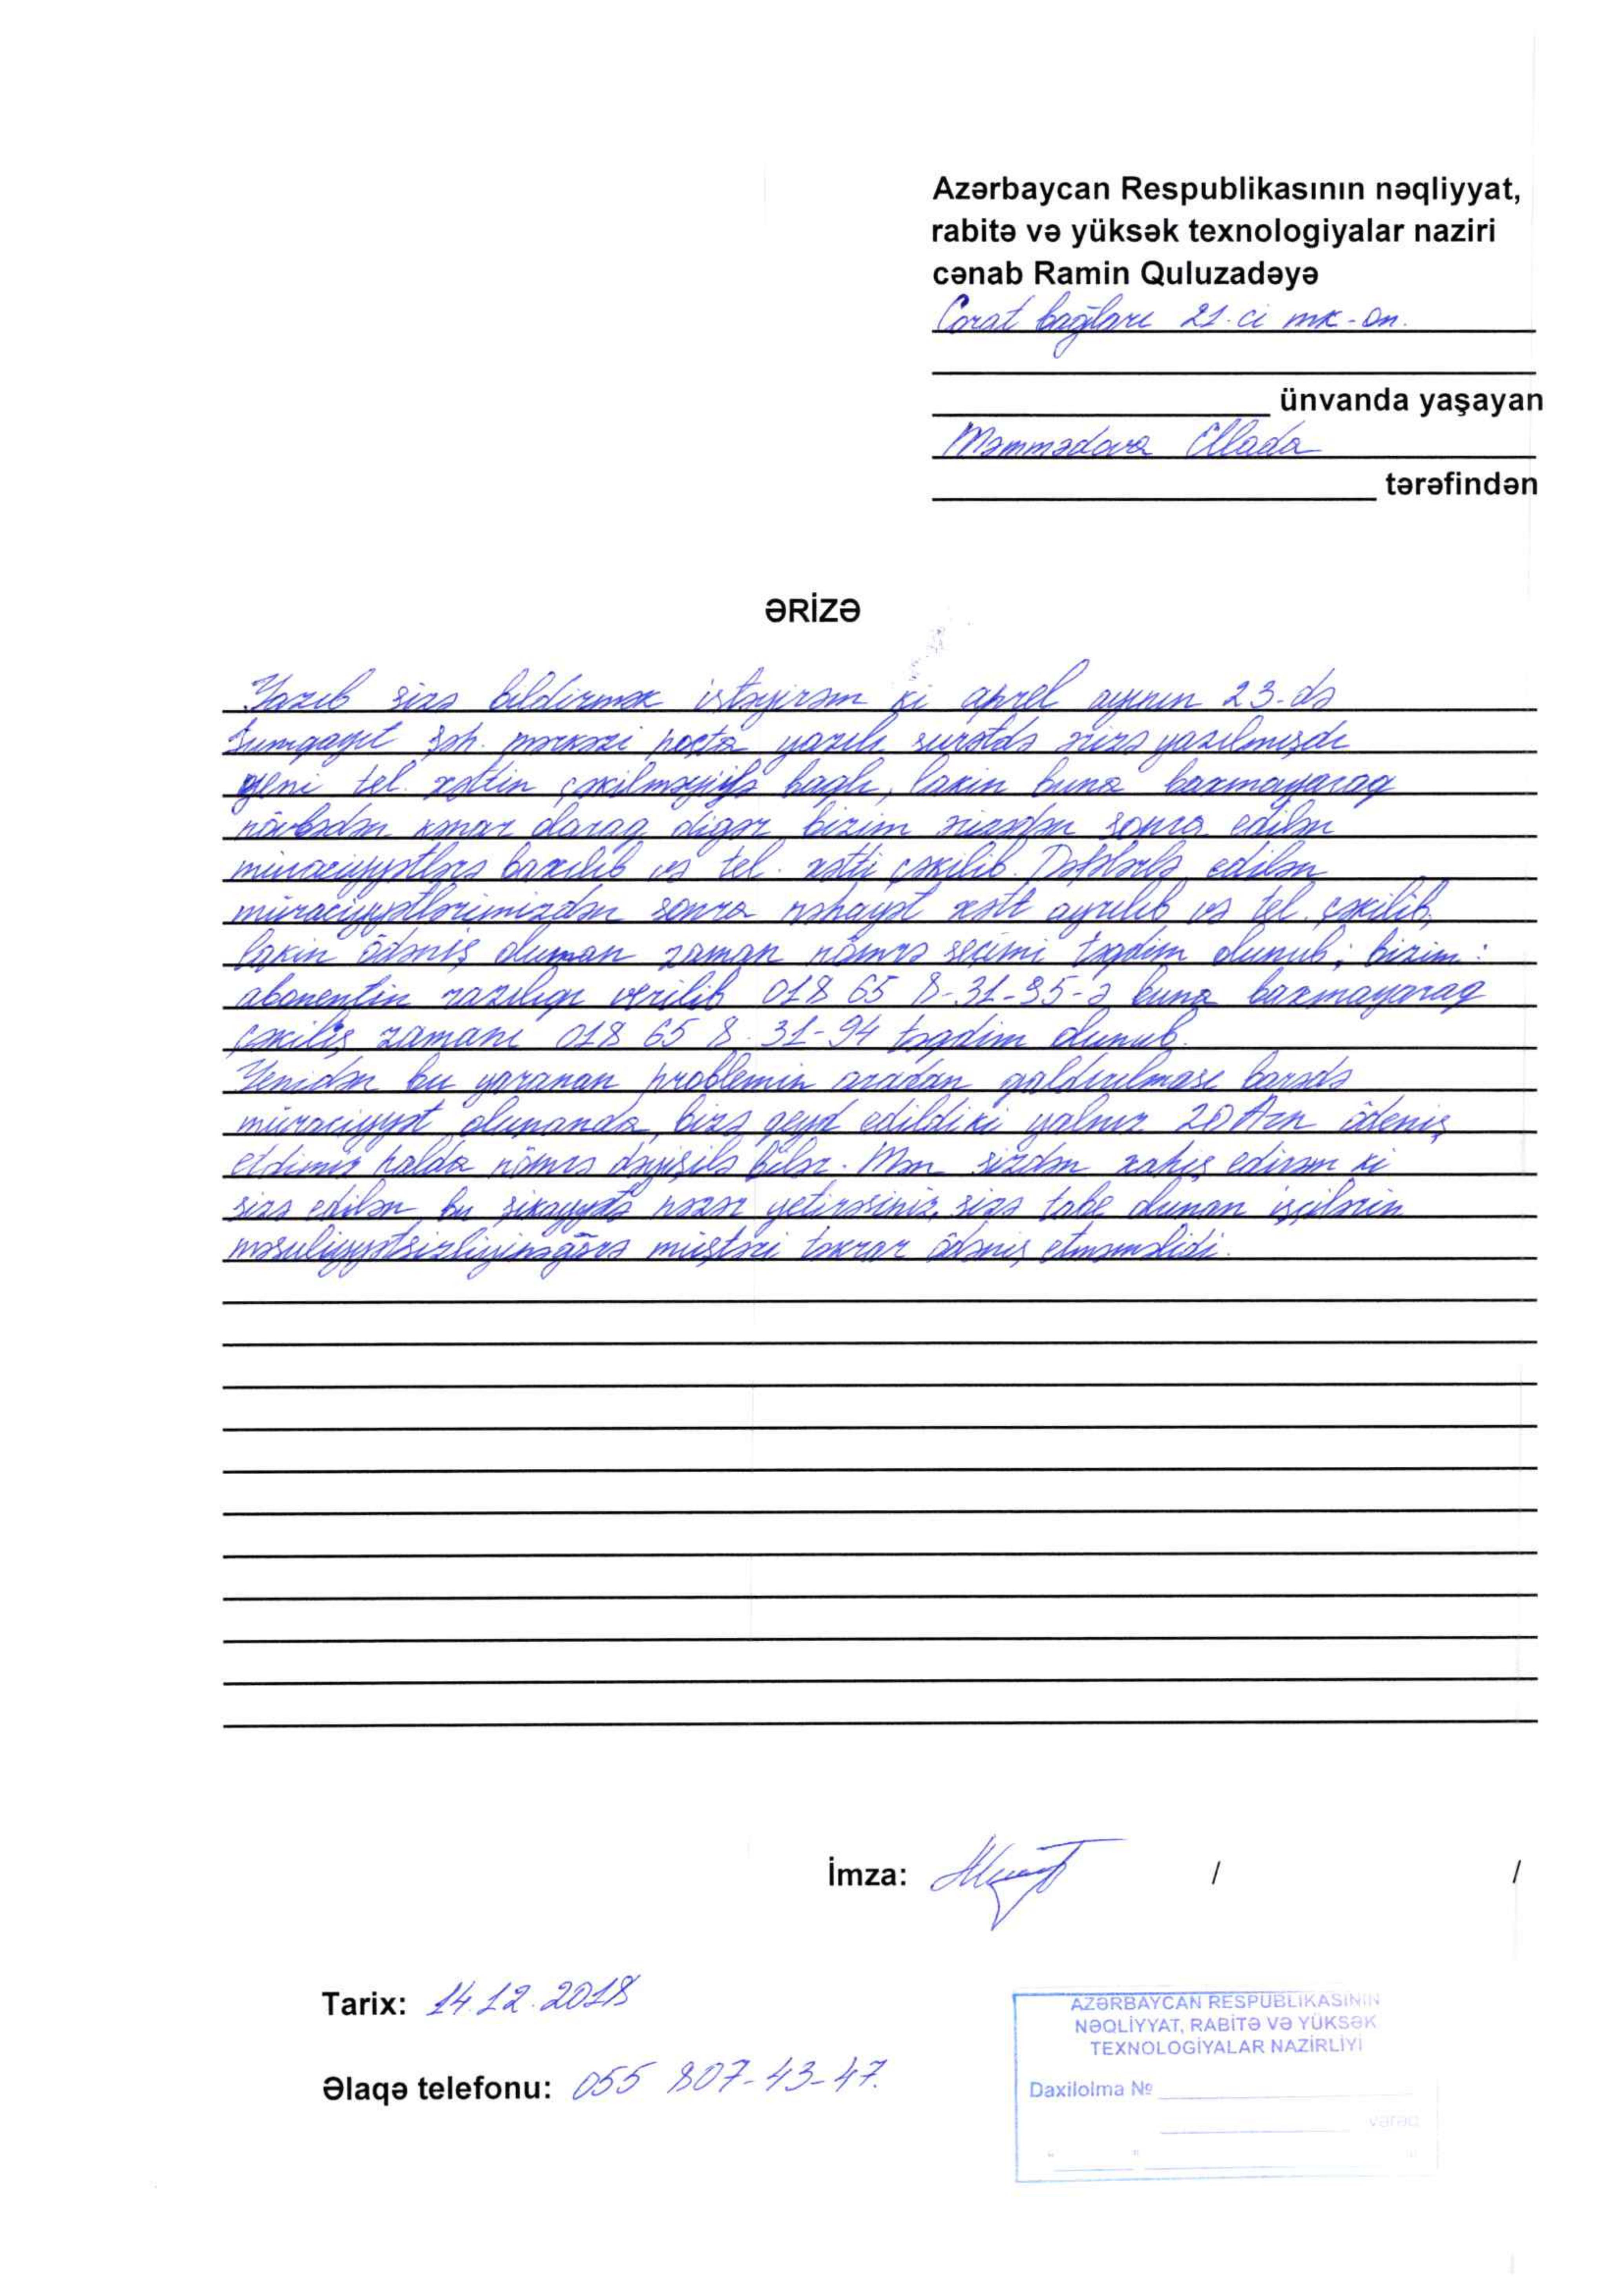 Azərbaycan Respublikasının nəqliyyat,
rabitə və yüksək texnologiyalar naziri
cənab Ramin Quluzadəyə
Corat bağları 21-ci mk-on.
ünvanda yaşayan
Məmmədova Ellada
tərəfindən
ƏRİZƏ
Yazıb sizə bildirmək istəyirəm ki aprel ayının 23-də
Sumqayıt şəh. mərkəzi poçta yazılı surətdə ərizə yazılmışdı
yeni tel. xəttin çəkilməyiylə bağlı, lakin buna baxmayaraq
növbədən kənar olaraq digər bizim ərizədən sonra edilən
müraciyyətlərə baxılıb və tel. xətti çəkilib. Dəfələrlə edilən
müraciyyətlərimizdən sonra nəhayət xətt ayrılıb və tel. çəkilib,
lakin ödəniş olunan zaman nömrə seçimi təqdim olunub; bizim:
abonentin razılıgı verilib 018 65 8-31-95-ə buna baxmayaraq
çəkiliş zamanı 018 65 8-31-94 təqdim olunub.
Yenidən bu yaranan problemin aradan qaldırılması barədə
müraciyyət olunanda, bizə qeyd edildi ki yalnız 20 Azn ödeniş
etdimiz halda nömrə dəyişilə bilər. Mən sizdən xahiş edirəm ki
sizə edilən bu şikayyətə nəzər yetirəsiniz, sizə tabe olunan işçilərin
məsuliyyətsizliyinəgörə müştəri təkrar ödəniş etməməlidi.
İmza: / /
Tarix: 14.12.2018
Əlaqə telefonu: 055 807-43-47.
AZƏRBAYCAN RESPUBLİKASININ
NƏQLİYYAT, RABİTƏ VƏ YÜKSƏK
TEXNOLOGİYALAR NAZİRLİYİ
Daxilolma №
vərəq